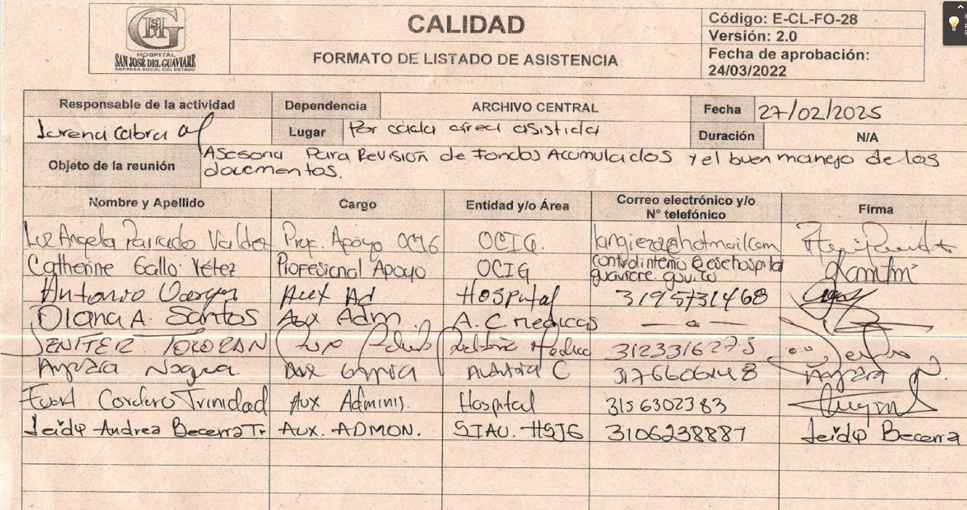 HOSPITAL
SAN JOSÉ DEL GUAVIARE
EMPRESA SOCIAL DEL ESTADO
CALIDAD
FORMATO DE LISTADO DE ASISTENCIA
Código: E-CL-FO-28
Versión: 2.0
Fecha de aprobación:
24/03/2022
Responsable de la actividad
Lorena Cabral
Dependencia ARCHIVO CENTRAL
Fecha 27/02/2025
Lugar Por cada area asistida
Duración N/A
Objeto de la reunión
Asesoria Para Revisión de Fondos Acumulados y el buen manejo de los
documentos.
Nombre y Apellido Cargo Entidad y/o Área Correo electrónico y/o N° telefónico Firma
Luz Angela Parrado Valdez Prof. Apoyo OCIG OCIG.
Catherine Gallo Vélez Profesional Apoyo OCIG controlinterno@esehospital
guaviare.gov.co
Antonio Vargas Aux Ad Hospital 3195731468
Diana A. Santos Aux Adm A. C medicas
312331627
Aux 3176606148
Cordero Trinidad Aux Adminis. Hospital 3156302383
Leidy Andrea Becerra T. Aux. ADMON. SIAU. HSJG 3106238887 Leidy Becerra